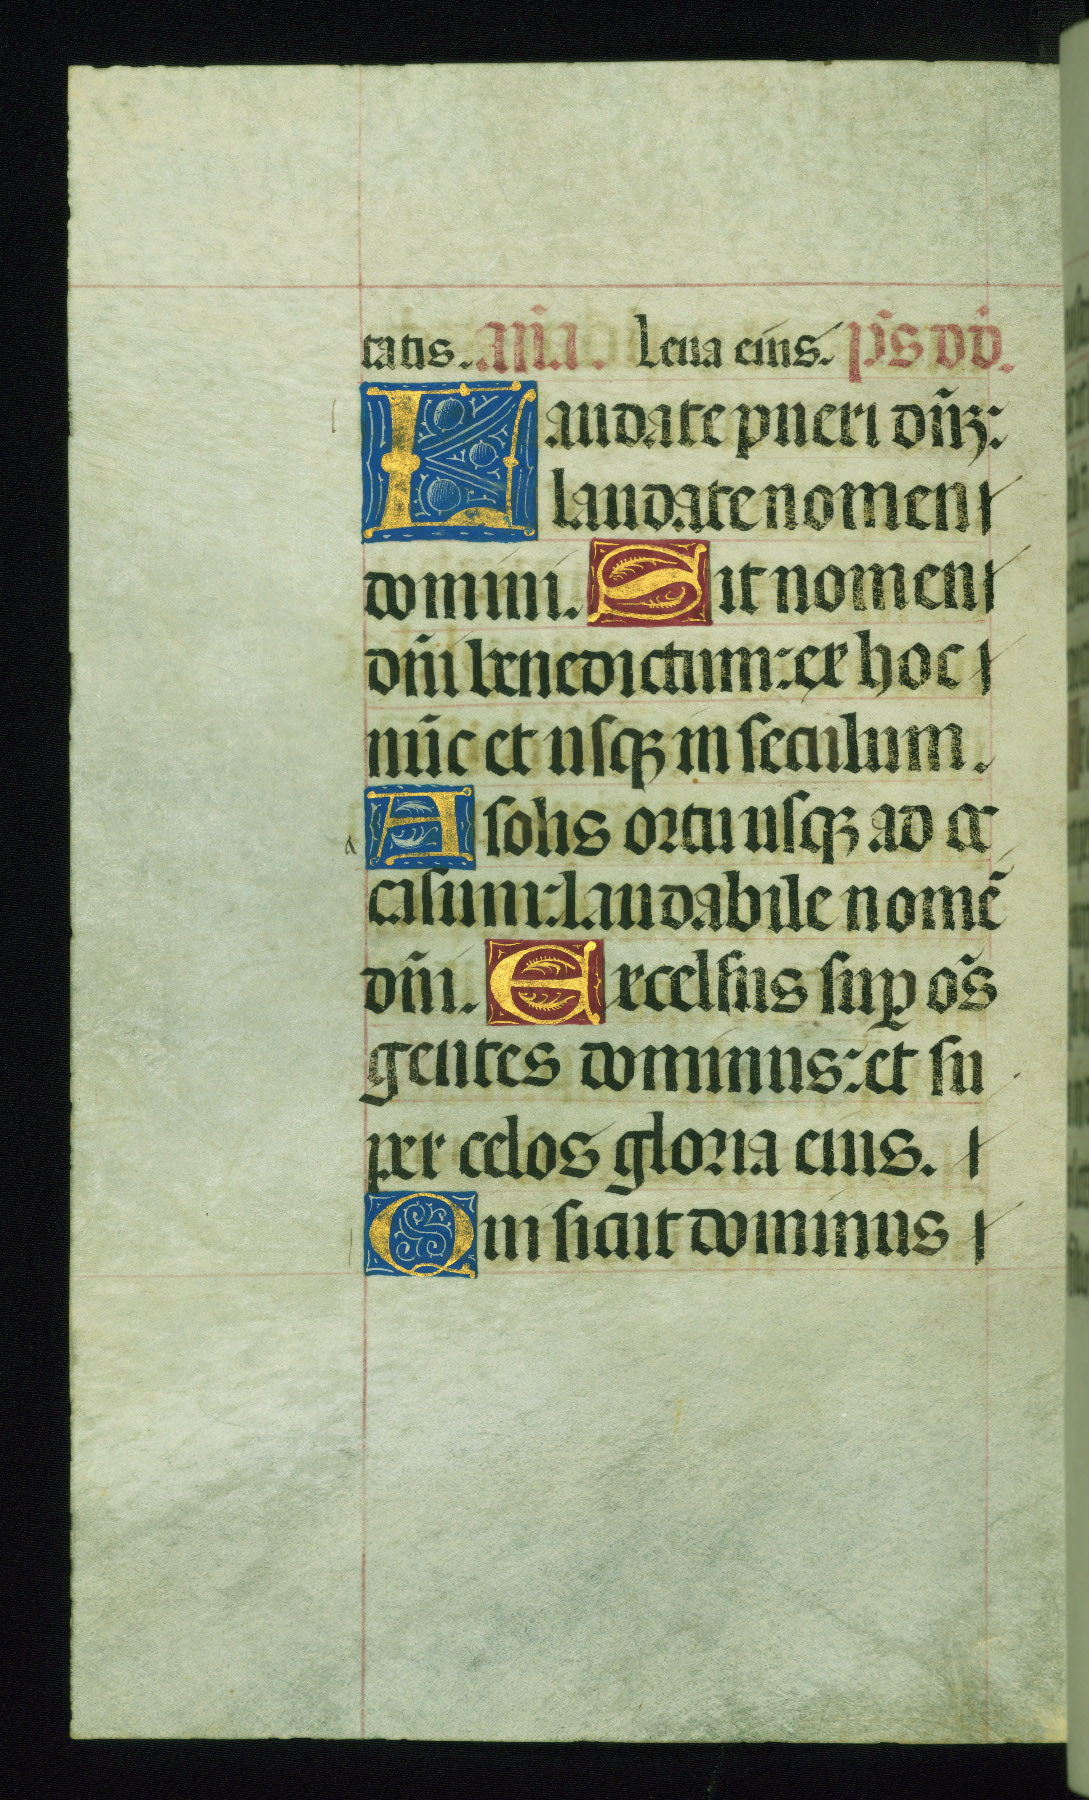 tatis. Aña. Leua eius. p̄s dd̄.
Laudate pueri dn̄ʒ:
laudate nomen
domini. Sit nomen
dn̄i benedictum: ex hoc
nūc et usqʒ in seculum.
A solis ortu usqʒ ad oc
casum: laudabile nomē
dn̄i. Excelsus suꝑ om̄s
gentes dominus: et su
per celos gloria eius.
Qui sicut dominus